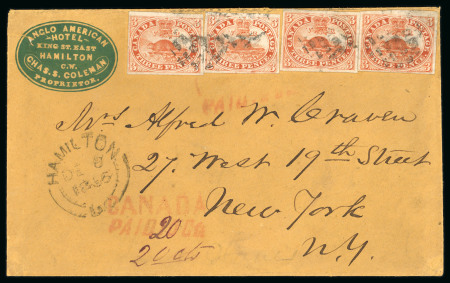 ANGLO AMERICAN
-HOTEL-
KING ST. EAST
HAMILTON
C.W.
CHAS. S. COLEMAN
PROPRIETOR.
CANADA POSTAGE
THREE PENCE
CANADA POSTAGE
THREE PENCE
CANADA POSTAGE
THREE PENCE
CANADA POSTAGE
THREE PENCE
PAID
Mrs Alfred W. Craven
HAMILTON
27. West 19th Street
CANADA
New York
PAID
20
20 cts
N.Y.